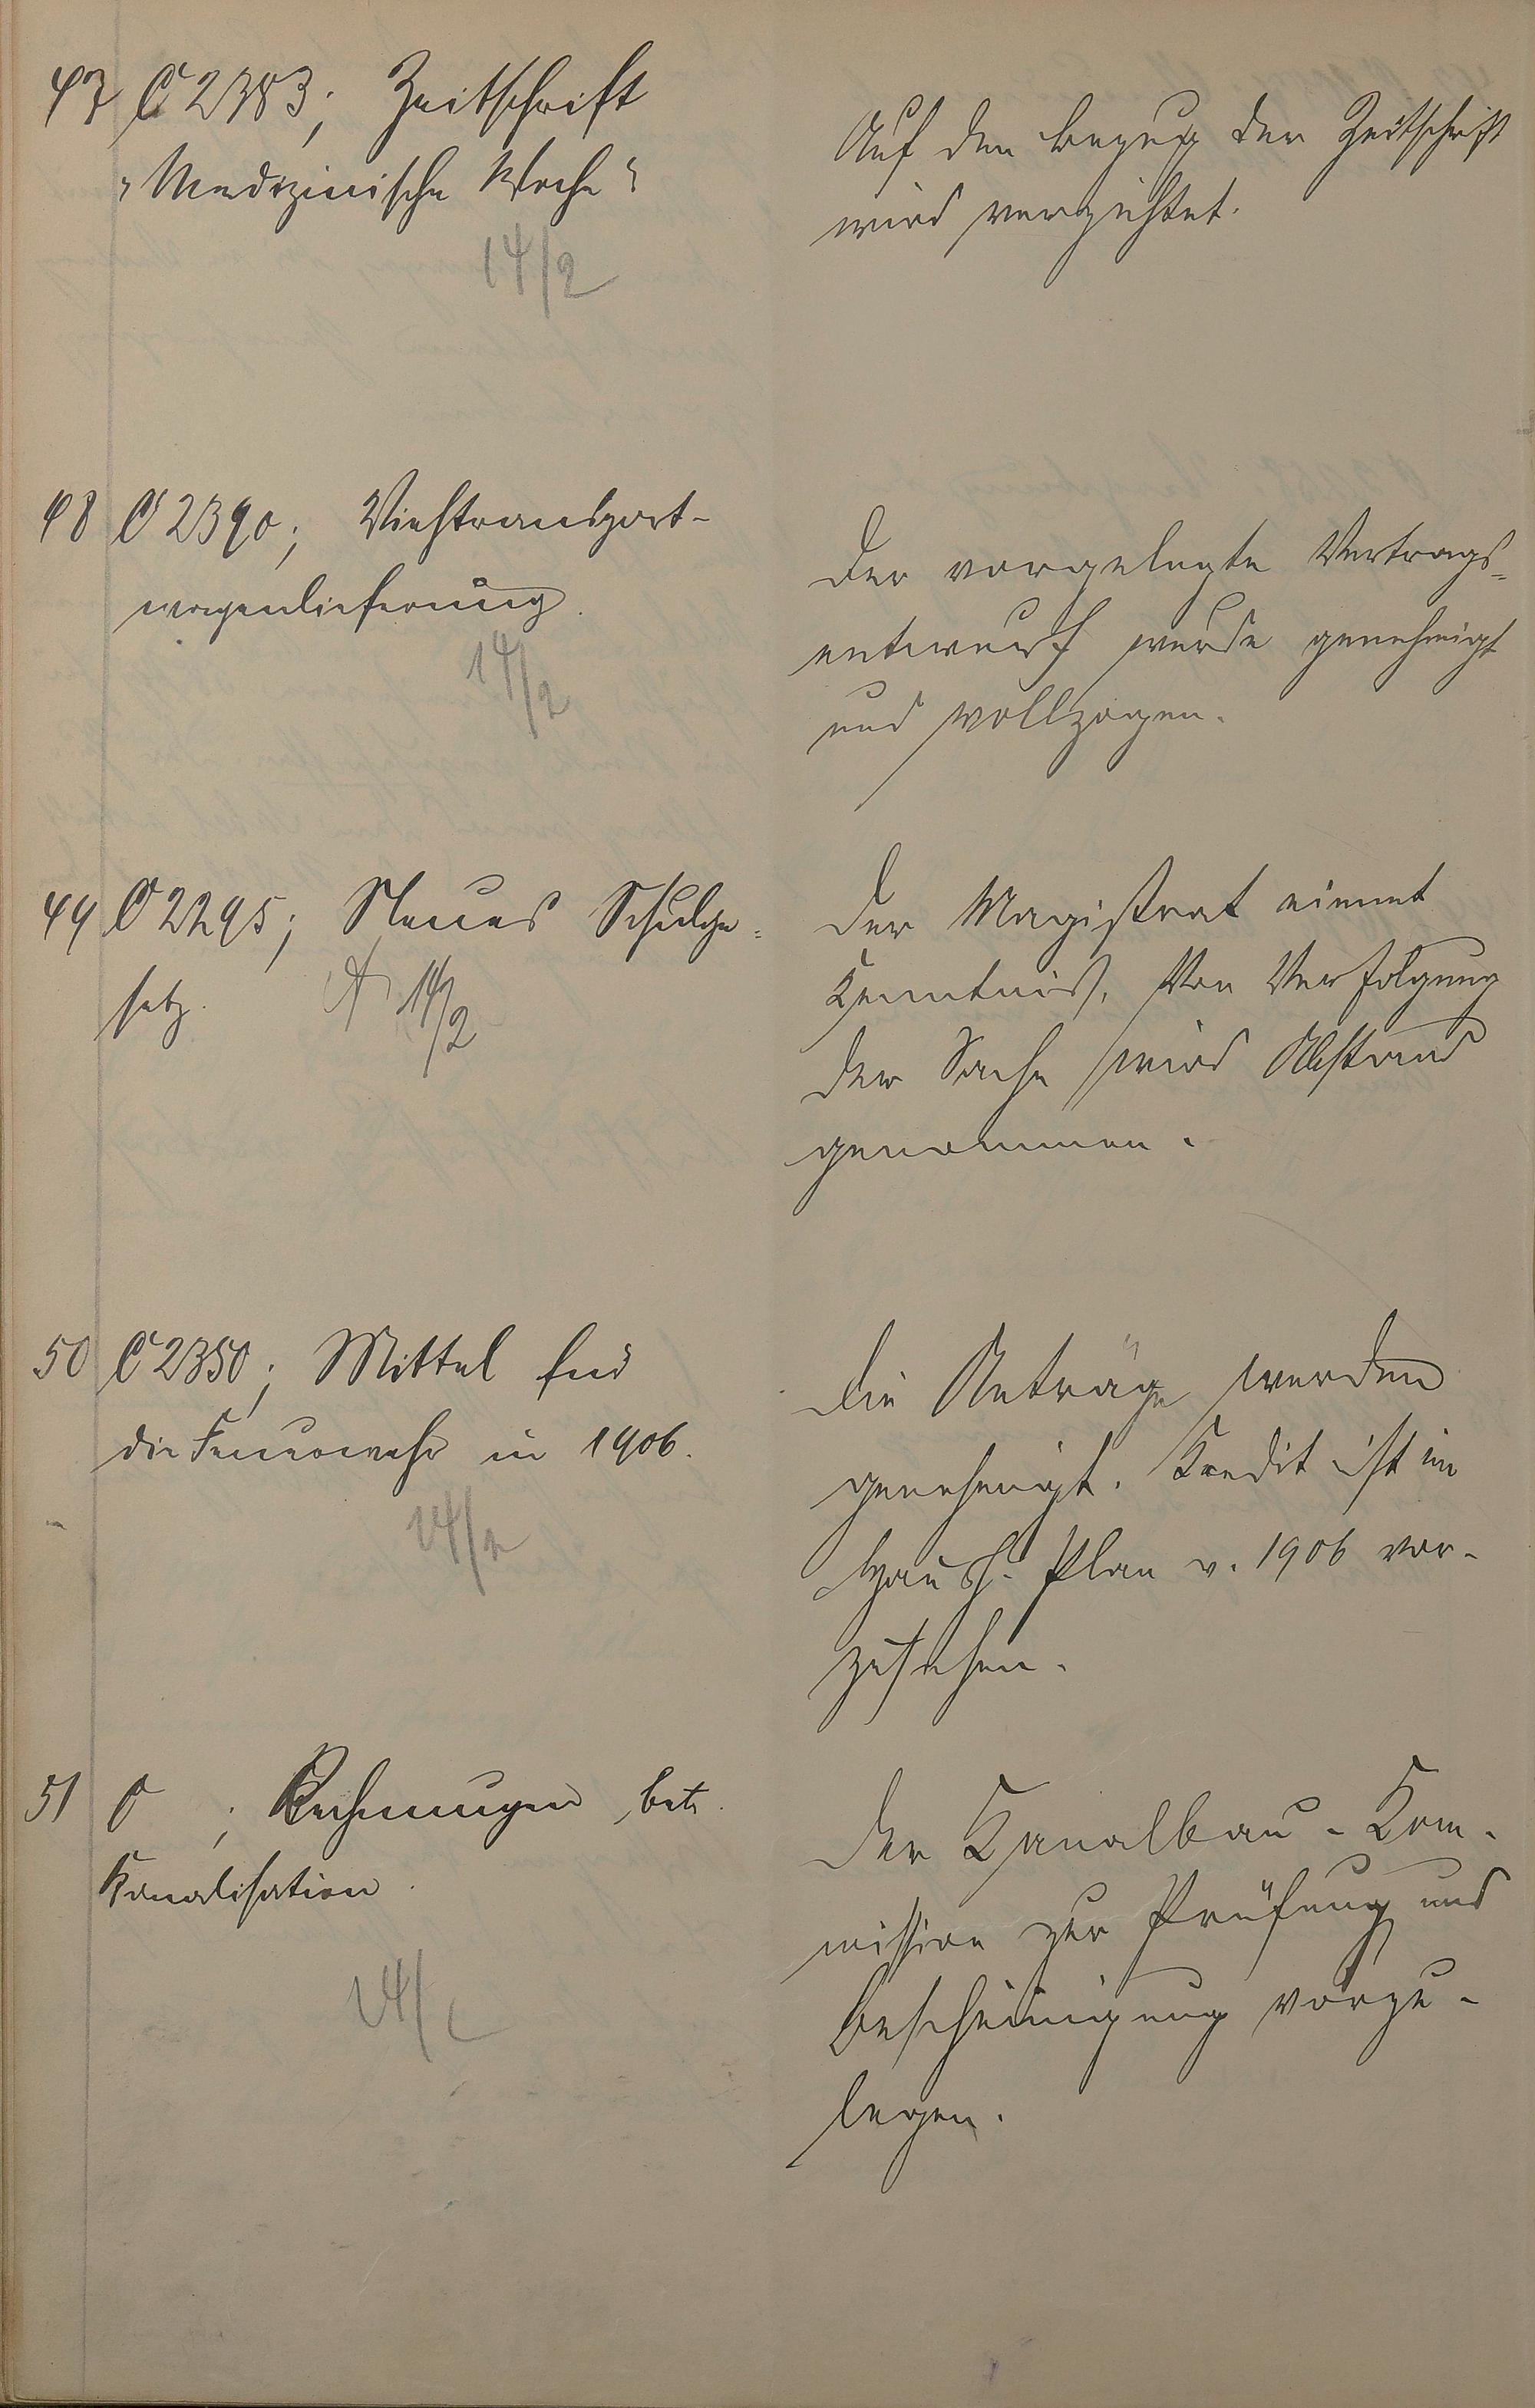 47 C 2383; Zeitschrift
„Medizinische Woche"
14/2
Auf den Bezug der Zeitschrift
wird verzichtet.
48 C 2390; Viehtransport-
wagenlieferung.
14/2
Der vorgelegte Vertrags-
entwurf wurde genehmigt
und vollzogen.
49 C 2295; Neues Schulge-
setz.
14/2
Der Magistrat nimmt
Kenntnis. Von Verfolgung
der Sache wird Abstand
genommen.
50 C 2350; Mittel für
die Feuerwehr in 1906.
14/2
Die Anträge werden
genehmigt. Kredit ist im
Haush. Plan v. 1906 vor-
zusehen.
51 C ; Rechnungen betr.
Kanalisation.
14/2
Der Kanalbau-Kom-
mission zur Prüfung und
Bescheinigung vorzu-
legen.